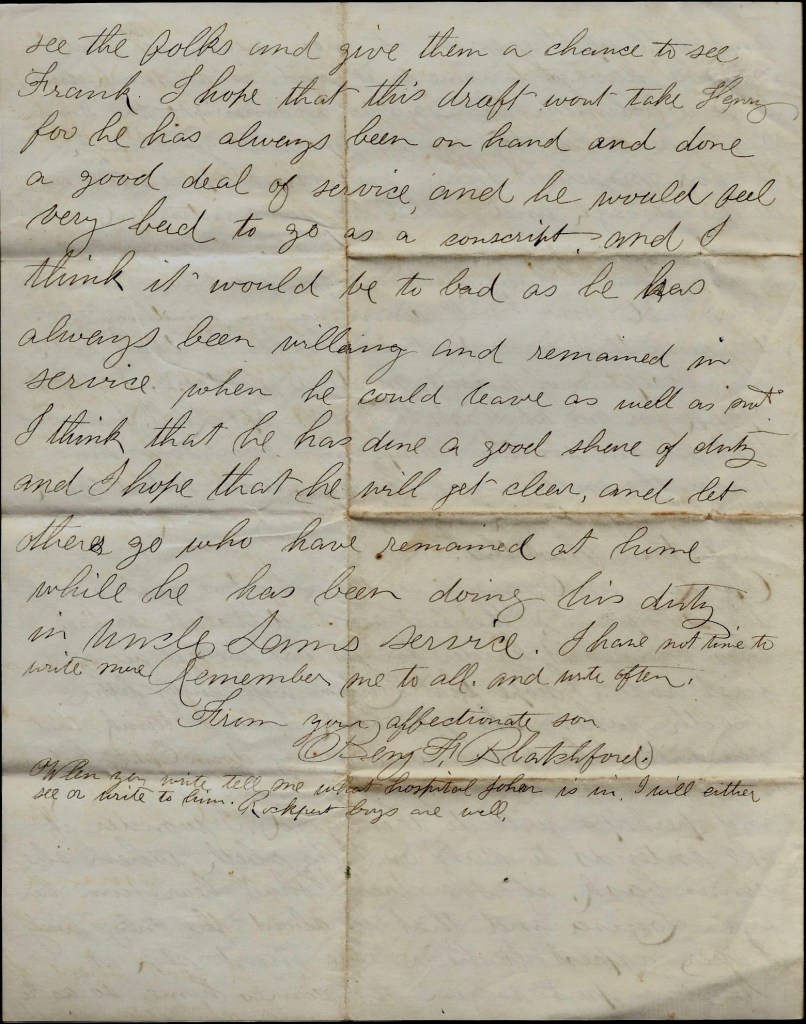 see the folks and give them a chance to see
Frank. I hope that this draft wont take Henry
for he has always been on hand and done
a good deal of service, and he would feel
very bad to go as a conscript, and I
think it would be to bad as he has
always been willing and remained in
service when he could leave as well as not.
I think that he has done a good share of duty
and I hope that he will get clear, and let
others go who have remained at home
while he has been doing his duty
in Uncle Sam's service. I have not time to
write more Remember me to all. and write often.
From your affectionate son
Benj F. Blatchford.
When you write tell me what hospital John is in. I will either
see or write to him. Rockport boys are well.